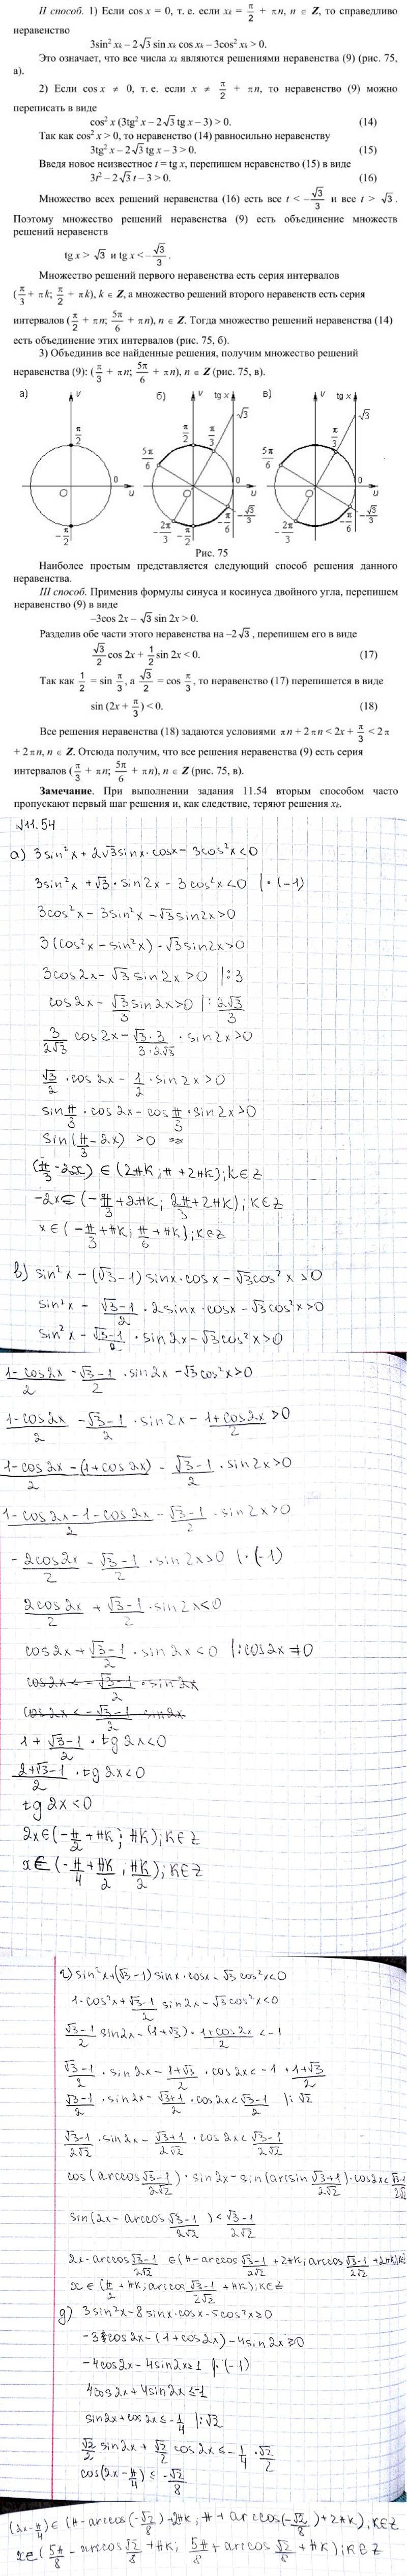 II способ. 1) Если cos x = 0, т. е. если xₖ = π/2 + πn, n ∈ Z, то справедливо
неравенство
3sin² xₖ – 2√3 sin xₖ cos xₖ – 3cos² xₖ > 0.
Это означает, что все числа xₖ являются решениями неравенства (9) (рис. 75,
а).
2) Если cos x ≠ 0, т. е. если x ≠ π/2 + πn, то неравенство (9) можно
переписать в виде
cos² x (3tg² x – 2√3 tg x – 3) > 0. (14)
Так как cos² x > 0, то неравенство (14) равносильно неравенству
3tg² x – 2√3 tg x – 3 > 0. (15)
Введя новое неизвестное t = tg x, перепишем неравенство (15) в виде
3t² – 2√3 t – 3 > 0. (16)
Множество всех решений неравенства (16) есть все t < –√3/3 и все t > √3.
Поэтому множество решений неравенства (9) есть объединение множеств
решений неравенств
tg x > √3 и tg x < –√3/3.
Множество решений первого неравенства есть серия интервалов
(π/3 + πk; π/2 + πk), k ∈ Z, а множество решений второго неравенств есть серия
интервалов (π/2 + πn; 5π/6 + πn), n ∈ Z. Тогда множество решений неравенства (14)
есть объединение этих интервалов (рис. 75, б).
3) Объединив все найденные решения, получим множество решений
неравенства (9): (π/3 + πn; 5π/6 + πn), n ∈ Z (рис. 75, в).
а) v π/2 0 O u –π/2
б) v tg x √3 π/2 π/3 5π/6 0 O u –2π/3 –π/2 –π/6 –√3/3
в) v tg x √3 π/3 5π/6 0 O u –2π/3 –π/6 –√3/3
Рис. 75
Наиболее простым представляется следующий способ решения данного
неравенства.
III способ. Применив формулы синуса и косинуса двойного угла, перепишем
неравенство (9) в виде
–3cos 2x – √3 sin 2x > 0.
Разделив обе части этого неравенства на –2√3, перепишем его в виде
√3/2 cos 2x + 1/2 sin 2x < 0. (17)
Так как 1/2 = sin π/3, а √3/2 = cos π/3, то неравенство (17) перепишется в виде
sin (2x + π/3) < 0. (18)
Все решения неравенства (18) задаются условиями πn + 2πn < 2x + π/3 < 2π
+ 2πn, n ∈ Z. Отсюда получим, что все решения неравенства (9) есть серия
интервалов (π/3 + πn; 5π/6 + πn), n ∈ Z (рис. 75, в).
Замечание. При выполнении задания 11.54 вторым способом часто
пропускают первый шаг решения и, как следствие, теряют решения xₖ.
№11.54
а) 3sin²x + 2√3sinx·cosx – 3cos²x<0
3sin²x + √3·sin2x – 3cos²x<0 |·(-1)
3cos²x – 3sin²x – √3sin2x>0
3(cos²x – sin²x) – √3sin2x>0
3cos2x – √3sin2x>0 |:3
cos2x – √3/3 sin2x>0 |: 2√3/3
3/(2√3) cos2x – (√3·3)/(3·2√3) · sin2x>0
√3/2 · cos2x – 1/2 · sin2x>0
sin π/3 · cos2x – cos π/3 · sin2x>0
sin(π/3 – 2x) >0
(π/3 – 2x) ∈ (2πk; π + 2πk); k∈Z
-2x ∈ (-π/3 + 2πk; 2π/3 + 2πk); k∈Z
x ∈ (-π/3 + πk; π/6 + πk); k∈Z
в) sin²x – (√3-1) sinx·cosx – √3cos²x>0
sin²x – (√3-1)/2 · 2sinx·cosx – √3cos²x>0
sin²x – (√3-1)/2 · sin2x – √3cos²x>0
(1-cos2x)/2 – (√3-1)/2 · sin2x – √3cos²x>0
(1-cos2x)/2 – (√3-1)/2 · sin2x – (1+cos2x)/2 >0
(1-cos2x – (1+cos2x))/2 – (√3-1)/2 · sin2x>0
(1-cos2x-1-cos2x)/2 – (√3-1)/2 · sin2x>0
– 2cos2x/2 – (√3-1)/2 · sin2x>0 |·(-1)
2cos2x/2 + (√3-1)/2 · sin2x<0
cos2x + (√3-1)/2 · sin2x<0 |:cos2x≠0
cos2x < – (√3-1)/2 · sin2x
cos2x < – (√3-1)/2 · sin2x
1 + (√3-1)/2 · tg2x<0
(2+√3-1)/2 · tg2x<0
tg2x<0
2x∈(-π/2 + πk; πk); k∈Z
x∈(-π/4 + πk/2; πk/2); k∈Z
г) sin²x+(√3-1)sinx·cosx – √3cos²x<0
1-cos²x + (√3-1)/2 sin2x – √3cos²x<0
(√3-1)/2 sin2x – (1+√3) · (1+cos2x)/2 < -1
(√3-1)/2 · sin2x – (1+√3)/2 · cos2x < -1 + (1+√3)/2
(√3-1)/2 · sin2x – (√3+1)/2 · cos2x < (√3-1)/2 |:√2
(√3-1)/(2√2) · sin2x – (√3+1)/(2√2) · cos2x < (√3-1)/(2√2)
cos(arccos (√3-1)/(2√2)) · sin2x – sin(arcsin (√3+1)/(2√2)) · cos2x < (√3-1)/(2√2)
sin(2x – arccos (√3-1)/(2√2)) < (√3-1)/(2√2)
2x – arccos (√3-1)/(2√2) ∈ (π – arccos (√3-1)/(2√2) + 2πk; arccos (√3-1)/(2√2) + 2πk);
x ∈ (π/2 + πk; arccos (√3-1)/(2√2) + πk); k∈Z
д) 3sin²x – 8sinx·cosx – 5cos²x≥0
-3cos2x – (1+cos2x) – 4sin2x≥0
-4cos2x – 4sin2x≥1 |·(-1)
4cos2x + 4sin2x≤-1
sin2x + cos2x ≤ -1/4 |:√2
√2/2 sin2x + √2/2 cos2x ≤ -1/4 · √2/2
cos(2x – π/4) ≤ -√2/8
(2x – π/4) ∈ (π – arccos(-√2/8) + 2πk; π + arccos(-√2/8) + 2πk), k∈Z
x∈(5π/8 – arccos √2/8 + πk; 5π/8 + arccos √2/8 + πk); k∈Z